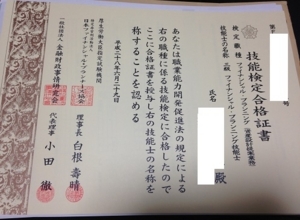 第
号
技能検定合格証書
検定職種 ファイナンシャル・プランニング
技能士の名称 二級ファイナンシャル・プランニング技能士
氏名
殿
あなたは職業能力開発促進法の規定による
右の職種に係る技能検定に合格したので
ここに合格証書を授与し右の技能士の名称を
称することを認める
平成二十八年六月二十九日
厚生労働大臣指定試験機関
日本ファイナンシャル・プランナーズ協会
理事長 白根壽晴
一般社団法人 金融財政事情研究会
代表理事 小田徹